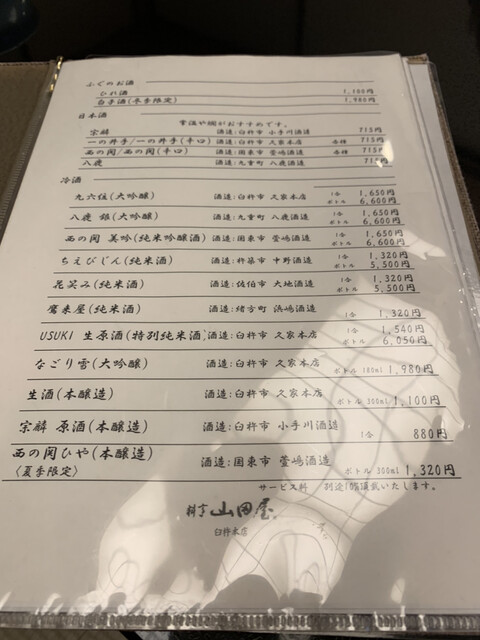 ふぐのお酒
ひれ酒 1,100円
白子酒(冬季限定) 1,980円
日本酒
常温や燗がおすすめです。
宗麟 酒造:臼杵市 小手川酒造 715円
一の井手/一の井手(辛口) 酒造:臼杵市 久家本店 各種 715円
西の関/西の関(辛口) 酒造:国東市 萱嶋酒造 各種 715円
八鹿 酒造:九重町 八鹿酒造 715円
冷酒
九六位(大吟醸) 酒造:臼杵市 久家本店 1合 1,650円
ボトル 6,600円
八鹿 銀(大吟醸) 酒造:九重町 八鹿酒造 1合 1,650円
ボトル 6,600円
西の関 美吟(純米吟醸酒) 酒造:国東市 萱嶋酒造 1合 1,650円
ボトル 6,600円
ちえびじん(純米酒) 酒造:杵築市 中野酒造 1合 1,320円
ボトル 5,500円
花笑み(純米酒) 酒造:佐伯市 大地酒造 1合 1,320円
ボトル 5,500円
鷹来屋(純米酒) 酒造:緒方町 浜嶋酒造 1合 1,320円
USUKI 生原酒(特別純米酒) 酒造:臼杵市 久家本店 1合 1,540円
ボトル 6,050円
なごり雪(大吟醸) 酒造:臼杵市 久家本店 ボトル 180ml 1,980円
生酒(本醸造) 酒造:臼杵市 久家本店 ボトル 300ml 1,100円
宗麟 原酒(本醸造) 酒造:臼杵市 小手川酒造 1合 880円
西の関ひや(本醸造) 酒造:国東市 萱嶋酒造 ボトル 300ml 1,320円
〈夏季限定〉
サービス料 別途10%頂戴いたします。
料亭 山田屋
臼杵本店